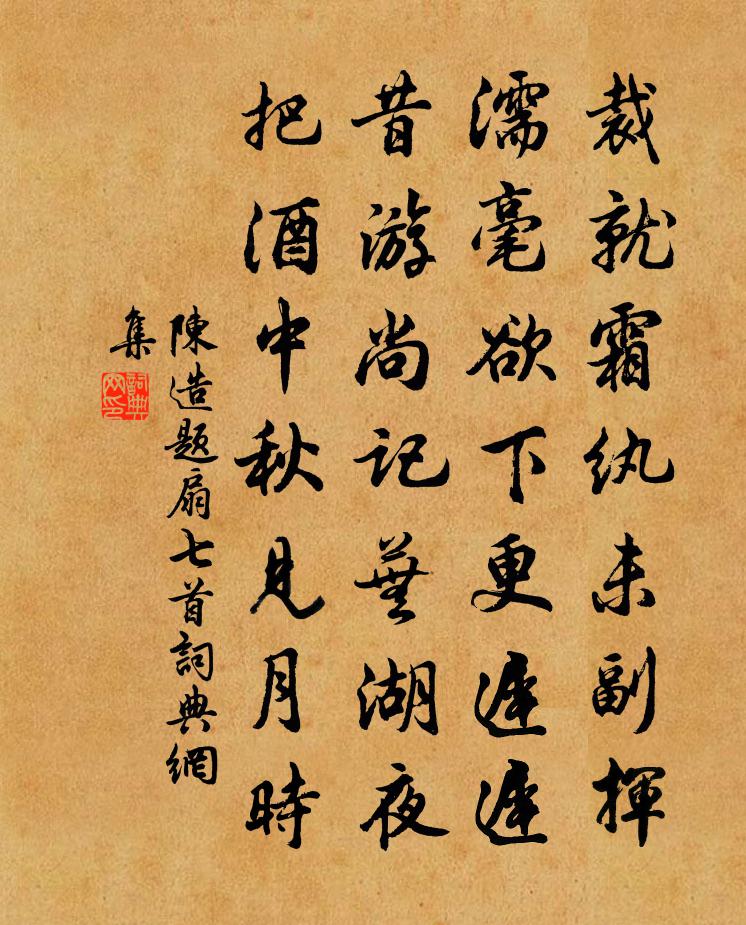 裁就霜纨未副揮
濡毫欲下更遲遲
昔游尚记蕪湖夜
把酒中秋見月時
陳造題扇七首詞典網
集
詞典网印